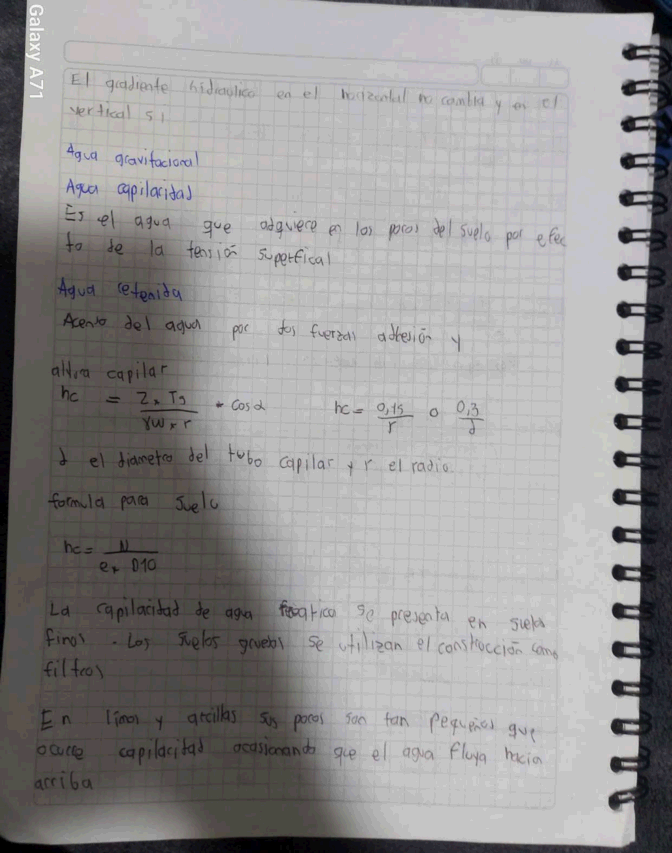 Galaxy A71
El gradiente hidraulico en el horizontal no cambia y en el
vertical si
Agua gravitacional
Agua capilaridad
Es el agua que adquiere en los poros del suelo por efec
to de la tensión superfical
Agua retenida
del agua por dos fuerzas adhesión y
altura capilar
hc = 2 * Ts / γw * r * cos α hc = 0,15 / r o 0,3 / d
d el diametro del tubo capilar y r el radio
formula para suelo
hc = N / e * D10
La capilacidad de agua se presenta en suelos
finos. Los suelos gruesos se utilizan el construcción como
filtros
En limos y arcillas sus poros son tan pequeños que
ocurre capilacitad ocasionando que el agua fluya hacia
arriba